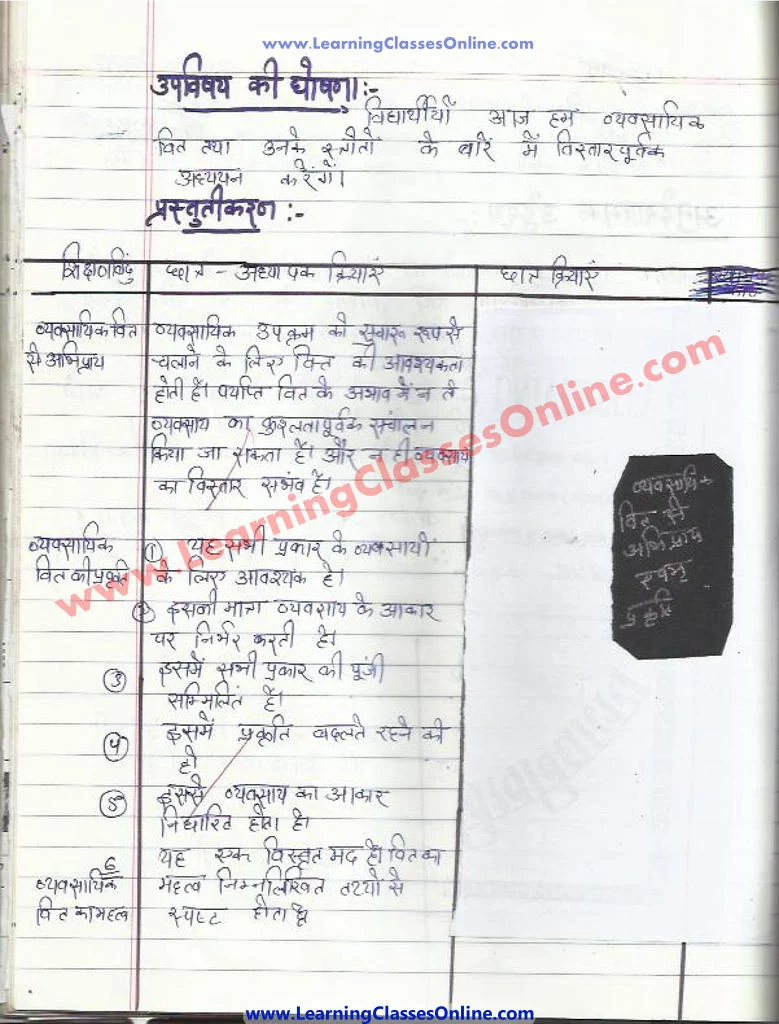 www.LearningClassesOnline.com
उपविषय की घोषणा:-
विद्यार्थीयों आज हम व्यवसायिक
वित तथा उनके स्त्रीतों के बारें में विस्तारपूर्वक
अध्ययन करेंगें।
प्रस्तुतीकरण:-
शिक्षणबिंदु छात्र - अध्यापक क्रियाएं छात्र क्रियाएं
व्यवसायिक वित व्यवसायिक उपक्रम को सुचारू रूप से
से अभिप्राय चलाने के लिए वित्त की आवश्यकता
होती है। पर्याप्त वित के अभाव में न तो
व्यवसाय का कुशलतापूर्वक संचालन
किया जा सकता है। और न ही व्यवसाय
का विस्तार संभव है।
व्यवसायिक (1) यह सभी प्रकार के व्यवसायों
वित की प्रकृति के लिए आवश्यक है।
(2) इसकी मात्रा व्यवसाय के आकार
पर निर्भर करती है।
(3) इसमें सभी प्रकार की पूंजी
सम्मिलित है।
(4) इसमें प्रकृति बदलते रहने की
है।
(5) इससे व्यवसाय का आकार
निर्धारित होता है।
6 यह एक विस्तृत मद है। वित का
व्यवसायिक महत्व निम्नलिखित तथ्यों से
वित का महत्व स्पष्ट होता है
व्यवसायिक
वित से
अभिप्राय
एवम्
प्रकृति
www.LearningClassesOnline.com
www.LearningClassesOnline.com